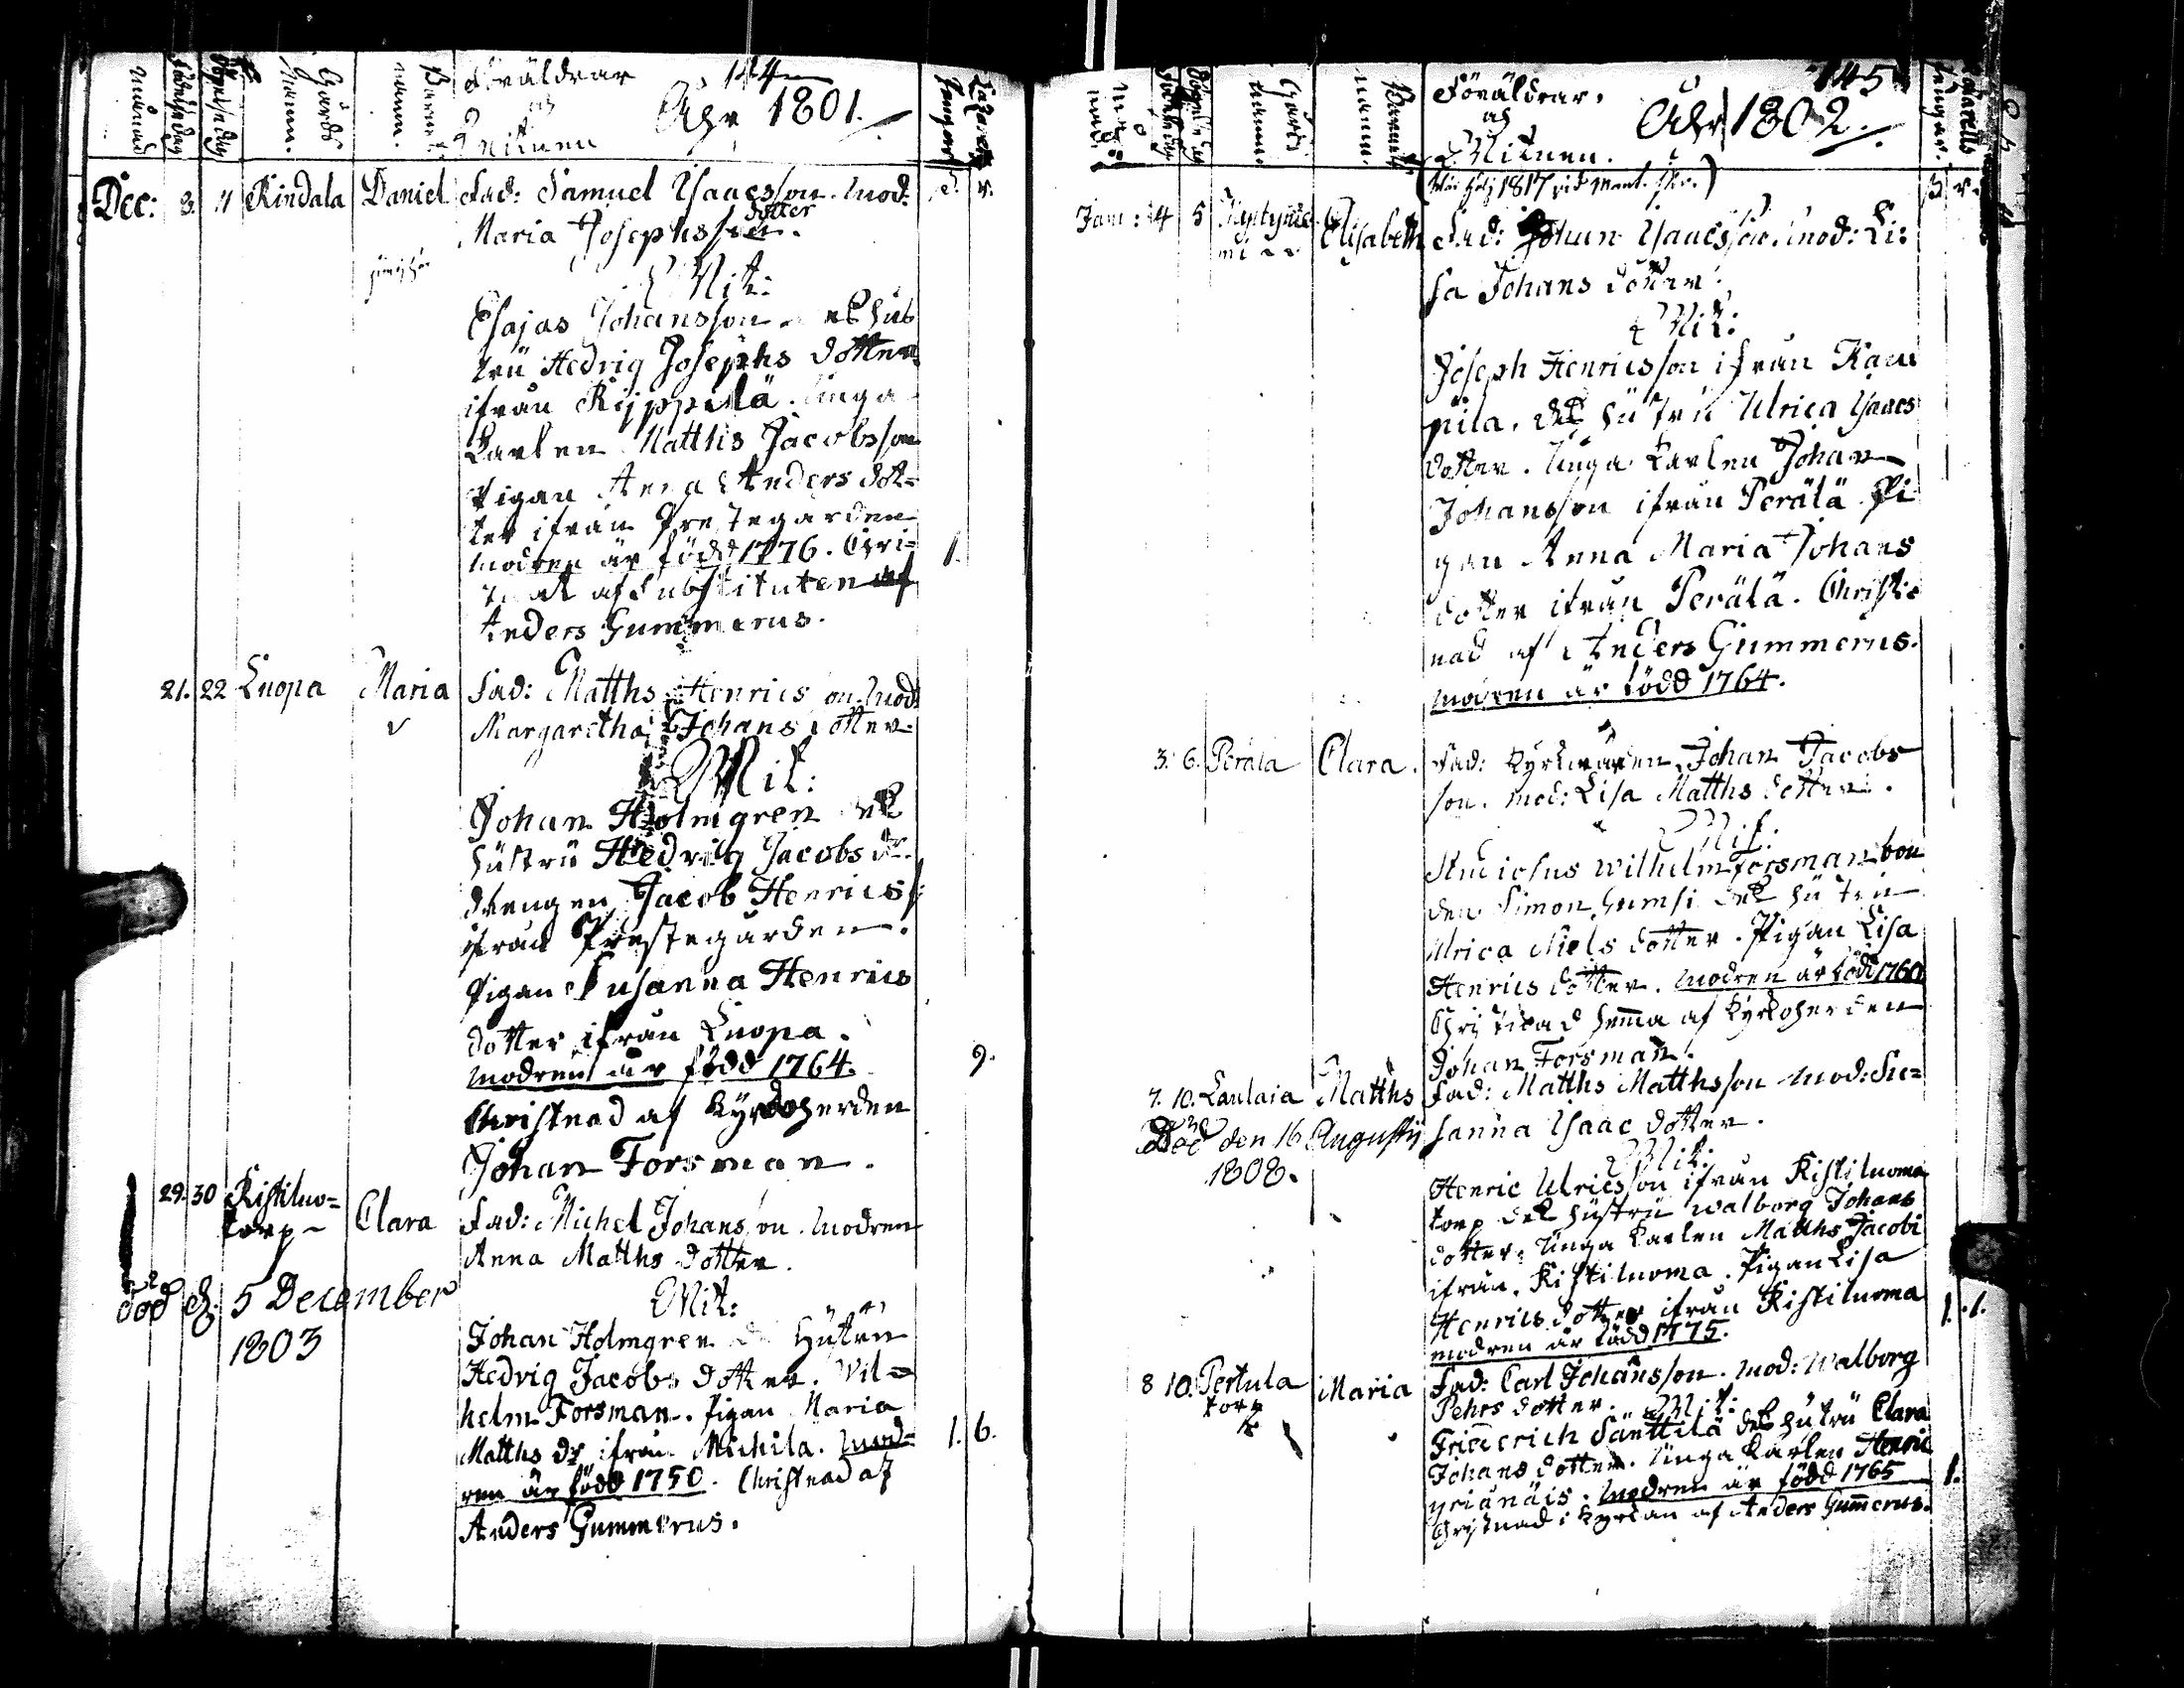 144
Föräldrar
och
Witnen
Åhr 1801.
månad
födelsedag
Gårds namn.
Barnets namn.
Dec: 3. 4 Rindala Daniel Fad: Samuel Isaacsson. Mod:
Maria Josephs dotter
Wit:
Esajas Johansson och hus
tru Hedvig Josephs dotter
ifrån Ryppilä. Unga
Karlen Matths Jacobsson
Pigan Anna Anders dot=
ter ifrån Prestegården
modren är född 1776. Chri= 1.
stnat af Substituten
Anders Gummerus.
21. 22 Luopa Maria Fad: Matths Henricsson. Mod:
Margaretha Johans dotter.
Wit:
Johan Holmgren och
hustru Hedvig Jacobs dr.
drengen Jacob Henrics
ifrån Prestegården.
Pigan Susanna Henrics
dotter ifrån Luopa.
modren är född 1764. 9.
Christnad af Kyrkoherden
Johan Forsman.
29. 30 Kistiluo=
torp Clara Fad: Michel Johansson. Modren
Anna Matths dotter.
död d. 5 December
1803
Wit:
Johan Holmgren hustru
Hedvig Jacobs dotter. Wil=
helm Forsman. Pigan Maria
Matths dr ifrån Michila. Mod= 1. 6.
ren är född 1750. Christnad af
Anders Gummerus.
145
Föräldrar.
och
Witnen.
Åhr 1802.
månad
Gårds namn.
Barnets namn.
1817
Jan: 4 5 Elisabeth Fad: Johan Isaacsson. Mod: Li:
sa Johans dotter.
Wit:
Joseph Henricsson ifrån Kam
pila. och hustru Ulrica Isaacs
dotter. Unga Karlen Johan
Johansson ifrån Perälä. Pi
gan Anna Maria Johans
dotter ifrån Perälä. Christ=
nad af Anders Gummerus.
modren är född 1764.
3. 6. Perälä Clara. Fad: Kyrkvärden Johan Jacobs
son. Mod: Lisa Matths dotter.
Wit:
Studiosus Wilhelm Forsman bon
den Simon Gumsi och hustru
Ulrica Niels dotter. Pigan Lisa
Henrics dotter. Modren är född 1760
Christnad hemma af Kyrkoherden
Johan Forsman.
7. 10. Laulaja Matths Fad: Matths Matthsson Mod: Su=
Död den 16 Augustij
1808.
sanna Isaac dotter.
Wit:
Henric Ulricsson ifrån Kistiluoma
torp och hustru Walborg Johans
dotter. Unga Karlen Matths Jacobi
ifrån Kistiluoma. Pigan Lisa
Henrics dotter ifrån Kistiluoma 1. 1.
modren är född 1775.
8 10. Pertula
torp Maria Fad: Carl Johansson. Mod: Walborg
Pehrs dotter. Wit:
Friederich Sänttilä och hustru Clara
Johans dotter. Unga Karlen Henric
Yrjänäis. Modren är född 1765 1.
Christnad i Kyrkan af Anders Gummerus.